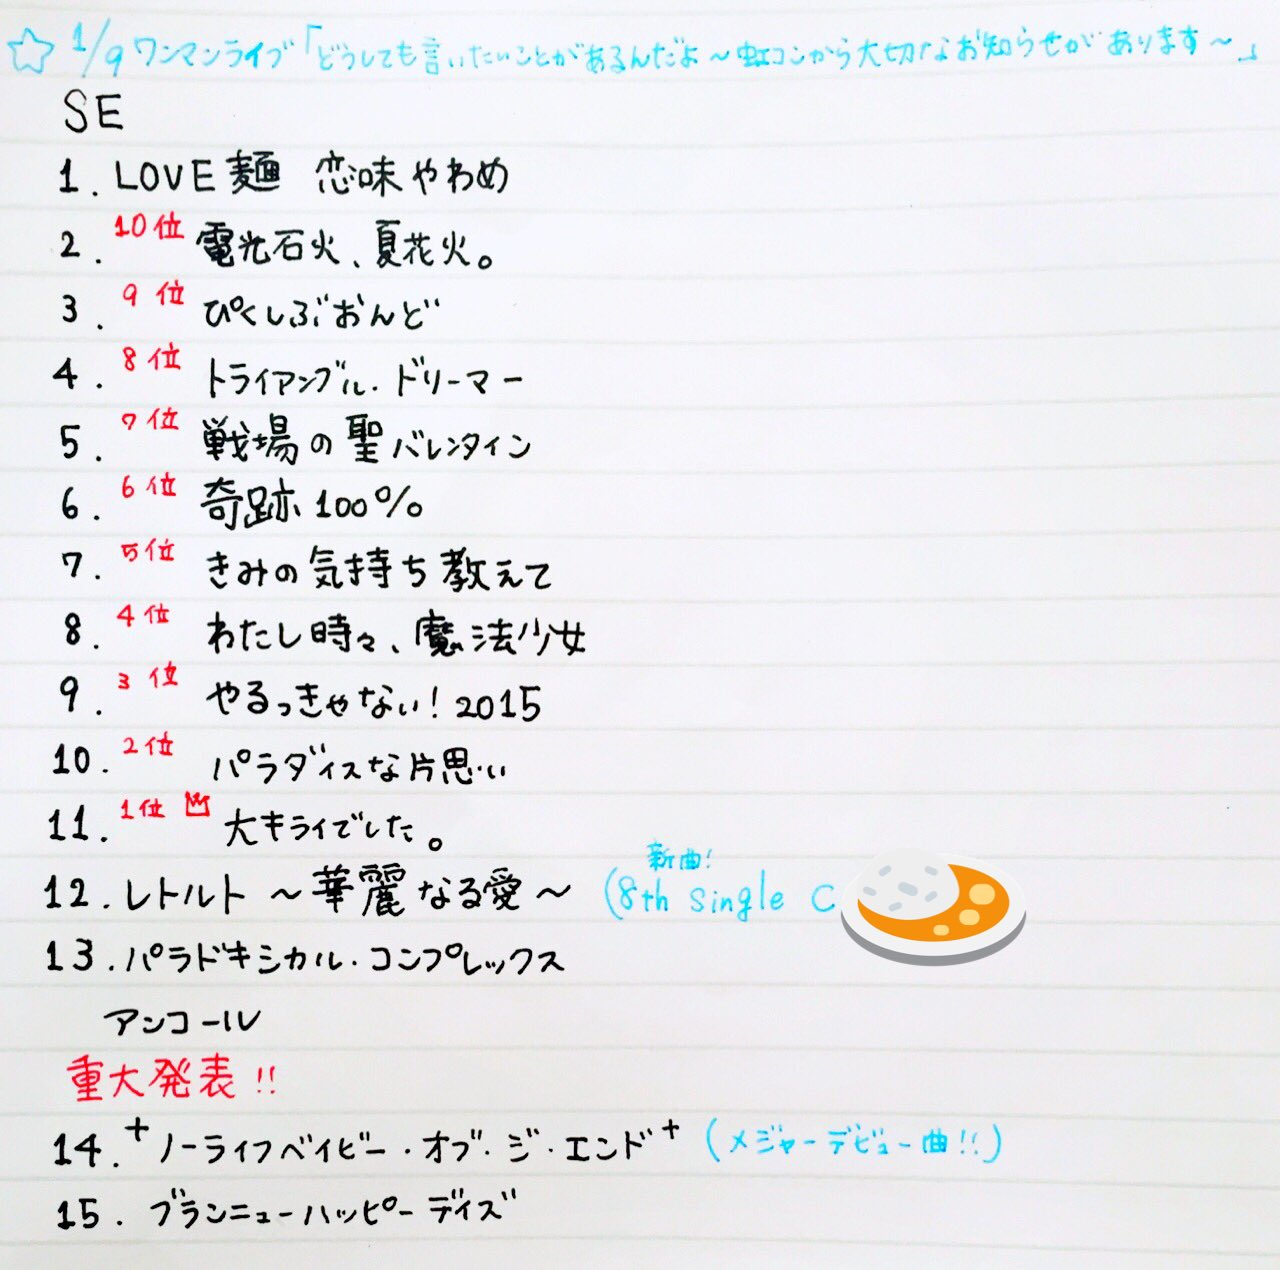 ☆ 1/9 ワンマンライブ「どうしても言いたいことがあるんだよ～虹コンから大切なお知らせがあります～」
SE
1. LOVE麺 恋味やわめ
2. 10位 電光石火、夏花火。
3. 9位 ぴくしぶおんど
4. 8位 トライアングル・ドリーマー
5. 7位 戦場の聖バレンタイン
6. 6位 奇跡100%
7. 5位 きみの気持ち教えて
8. 4位 わたし時々、魔法少女
9. 3位 やるっきゃない!2015
10. 2位 パラダイスな片思い
11. 1位 大キライでした。
12. レトルト～華麗なる愛～ (8th Single C 新曲!
13. パラドキシカル・コンプレックス
アンコール
重大発表!!
14. +ノーライフベイビー・オブ・ジ・エンド+ (メジャーデビュー曲!!)
15. ブランニューハッピーデイズ